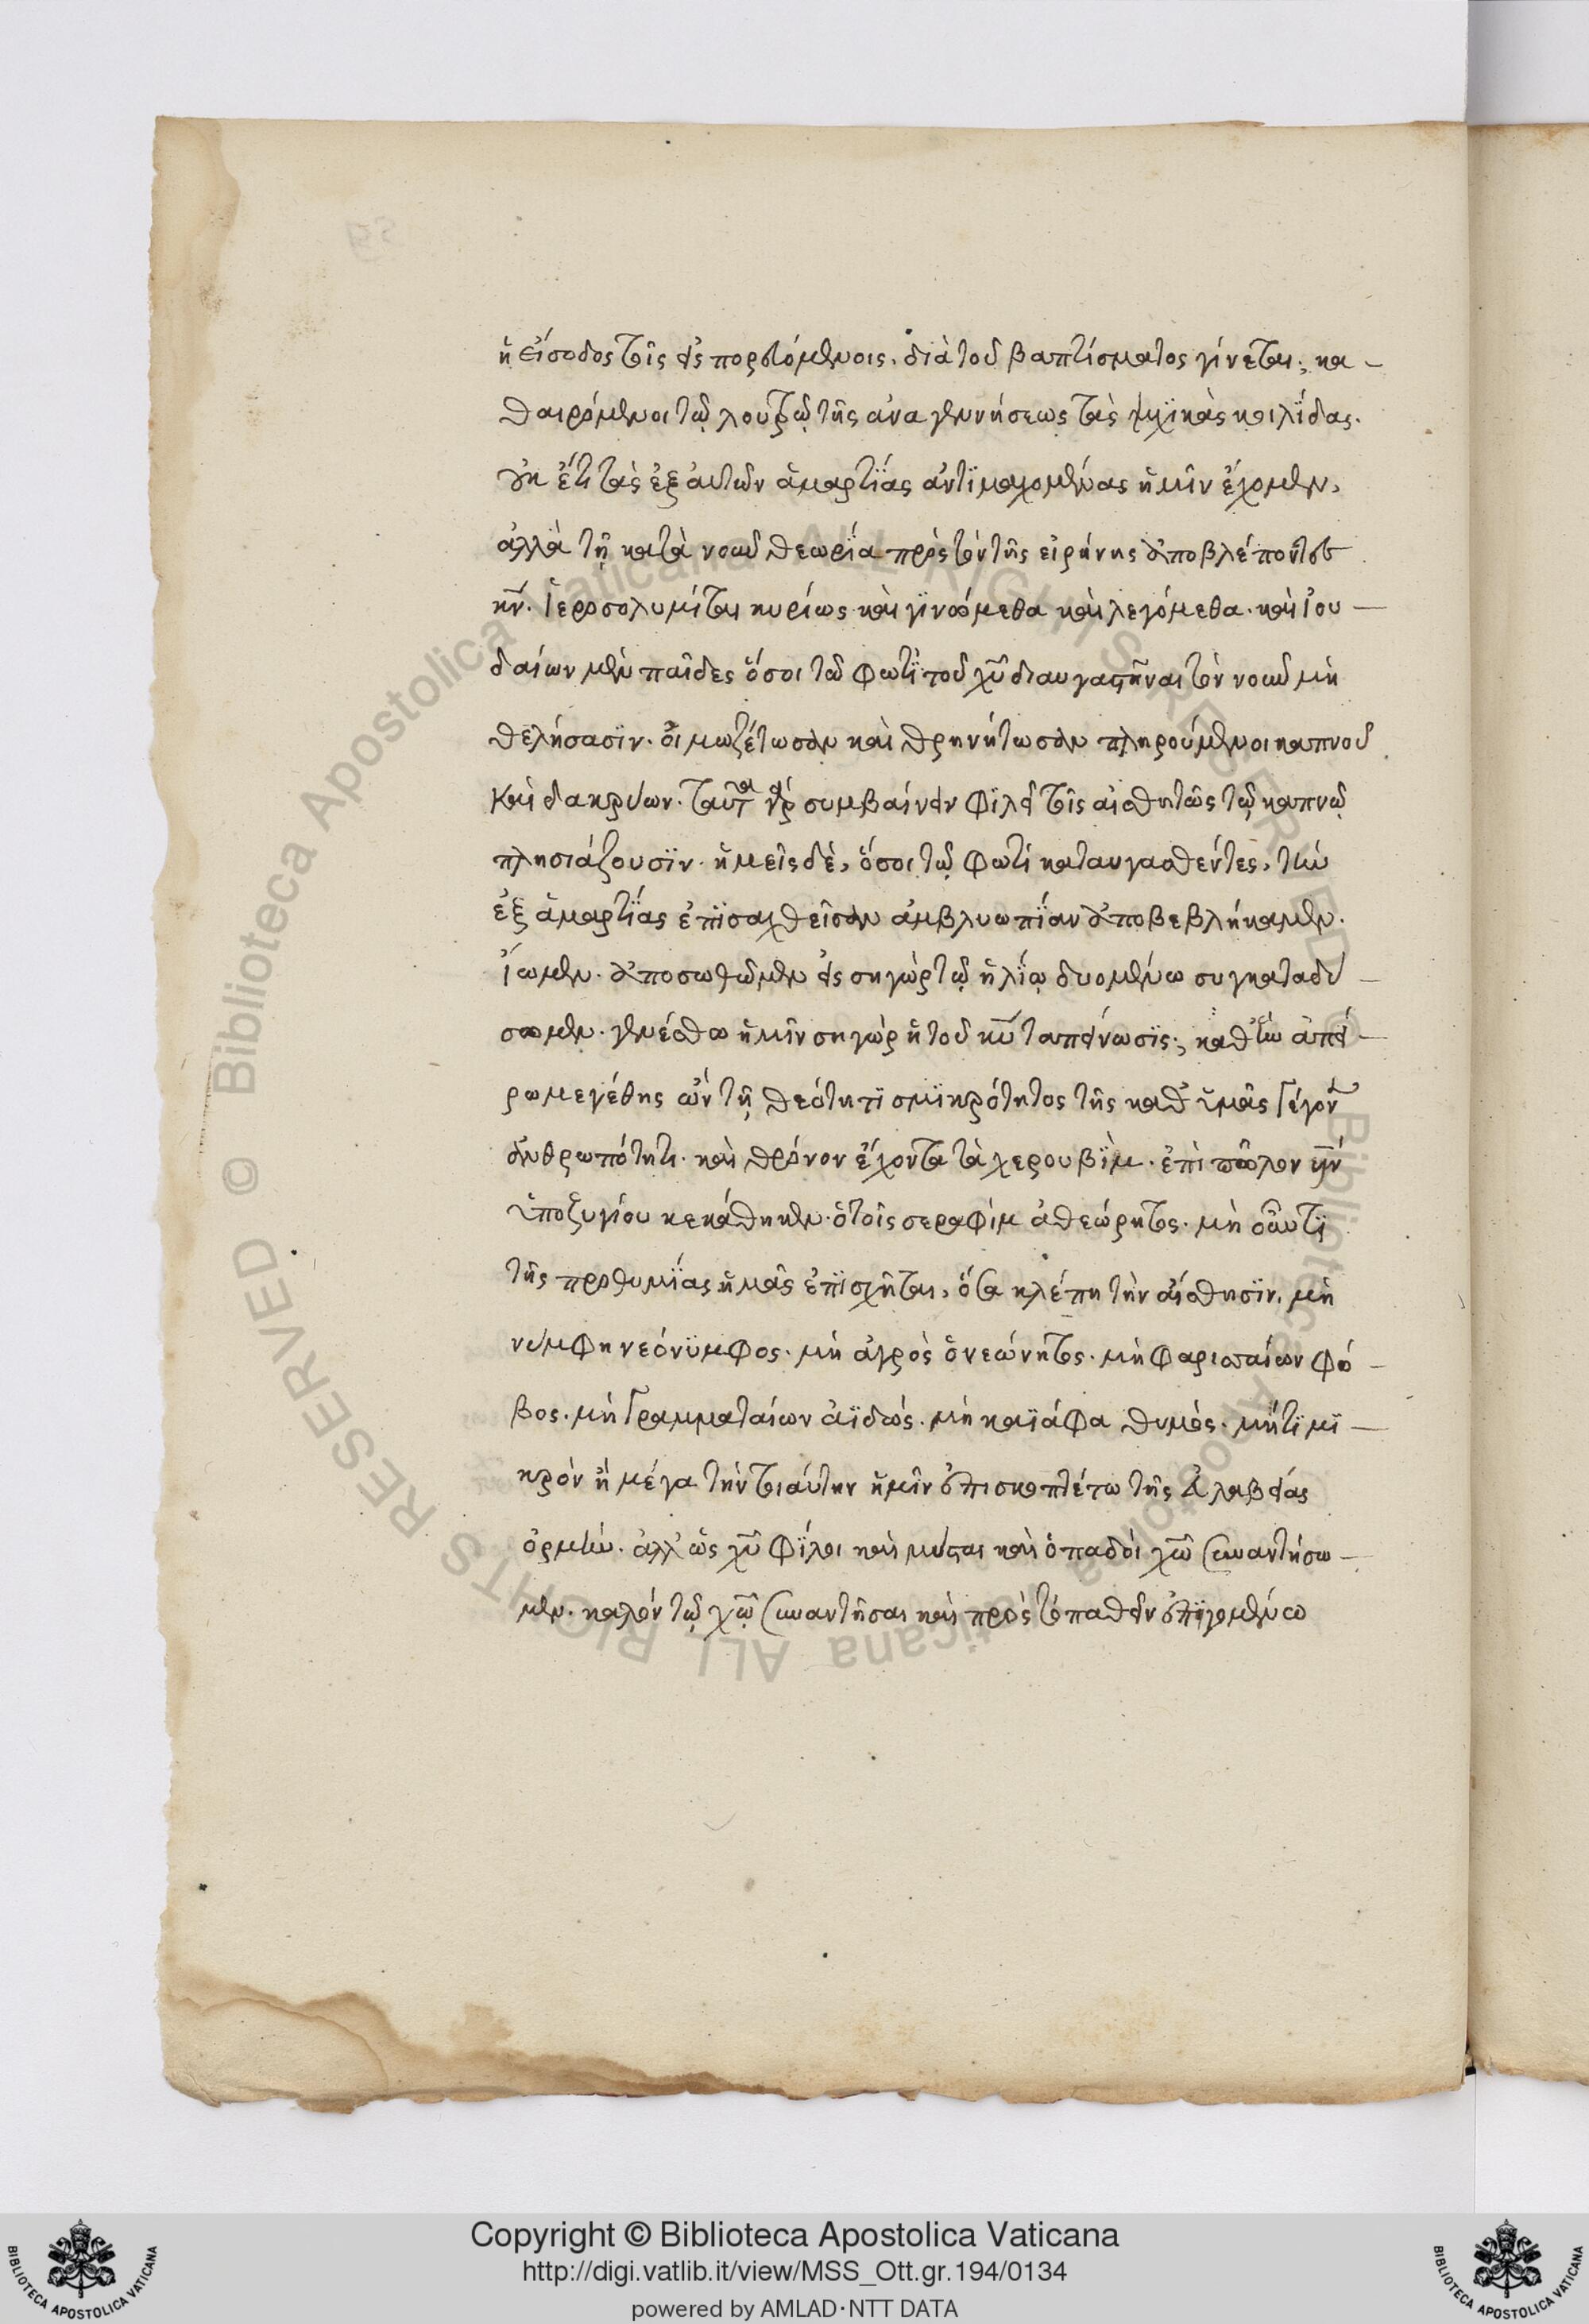 ἡ εἴσοδος τοῖς εἰσπορευόμενοις. διὰ τοῦ βαπτίσματος γίνεται; κα -
θαιρόμενοι τῷ λουτρῷ τῆς ἀναγεννήσεως τὰς ψυχϊκὰς κοιλΐδας.
οὐκ ἔτι τὰς ἐξ αὐτῶν ἁμαρτΐας ἀντϊμαχομένας ἡμῖν ἔχομεν,
ἀλλὰ τῇ κατὰ νοῦν θεωρΐα πρὸς τὸν τῆς εἰρήνης ἀποβλέποντες
κν̅. Ἱεροσολυμίται κυρίως καὶ γϊνόμεθα καὶ λεγόμεθα. καὶ Ἰου -
δαίων μὲν παῖδες ὅσοι τῶ φωτΐ τοῦ χυ̅ διαυγασθῆναι τὸν νοῦν μὴ
θελήσασϊν. οἰμωζέτωσαν καὶ θρηνήτωσαν πληρούμενοι καπνοῦ
καὶ δακρύων. ταῦτα γὰρ συμβαίνειν φϊλεῖ τοῖς αἰσθητῶς τῷ καπνῷ
πλησιάζουσϊν. ἡμεῖς δὲ, ὅσοι τῷ φωτί καταυγασθέντες, τὴν
ἐξ ἁμαρτΐας ἐπϊσαχθεῖσαν ἀμβλυωπΐαν ἀποβεβλήκαμεν.
Ἴωμεν. ἀποσωθῶμεν εἰς σηγὼρ τῷ ἡλΐῳ δυομένω συγκαταδύ -
σωμεν. γενέσθω ἡμῖν σηγὼρ ἡ τοῦ κυ̅ ταπείνωσϊς; καθ᾽ ἣν ἀπεί -
ρωμεγέθης ὢν τῇ θεότητϊ σμϊκρότητος τῆς καθ᾽ ἡμᾶς γέγονεν
ἀνθρωπότητι. καὶ θρόνον ἔχοντα τὰ χερουβΐμ. ἐπὶ πῶλον
ὑποζυγίου κεκάθηκεν. ὁ τοῖς σεραφίμ ἀθεώρητος. μὴ οὖν τϊ
τῆς προθυμΐας ἡμᾶς ἐπϊσχῆται, ὅσα κλέπη τὴν αἴσθησϊν. μὴ
νύμφη νεόνϋμφος. μὴ ἀγρὸς ὁ νεώνητος. μὴ φαρισαίων φό -
βος. μὴ Γραμματαίων ἀϊδώς. μὴ καϊάφα θυμὸς. μήτϊ μϊ -
κρὸν ἢ μέγα τὴν τοιαύτην ἡμῖν ἐπισκοπτέτω τῆς εὐλαβείας
ὁρμήν. ἀλλ᾽ ὡς χυ̅ φΐλοι καὶ μύσται καὶ ὀπαδόὶ χω̅ συναντήσω -
μεν. καλόν τῷ χω̅ συναντῆσαι καὶ πρὸς τὸ παθεῖν ἐπϊγομένω